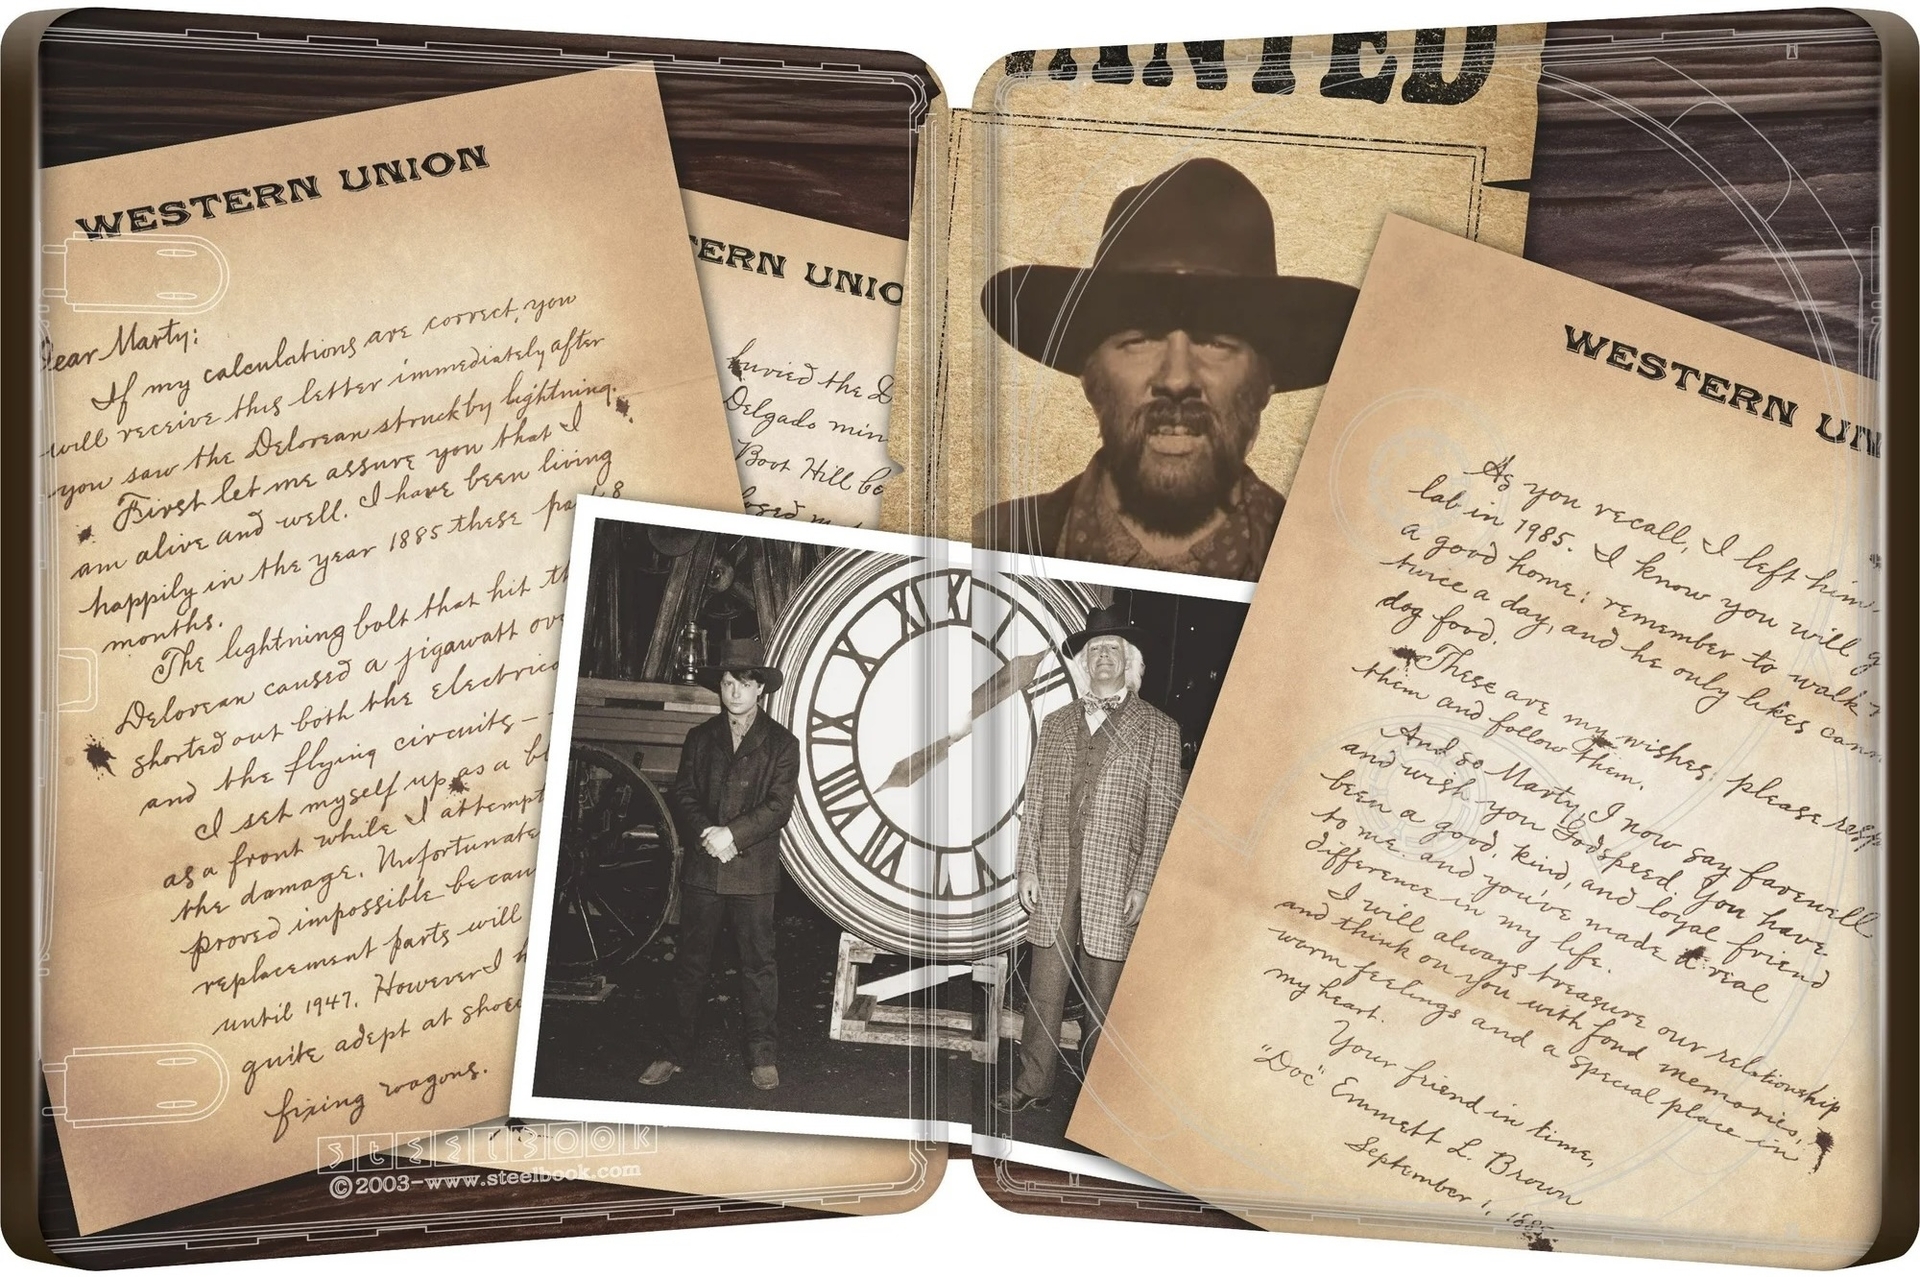 WESTERN UNION
ear Marty:
If my calculations are correct, you
will receive this letter immediately after
you saw the Delorean struck by lightning.
First let me assure you that I
am alive and well. I have been living
happily in the year 1885 these pa 8
months.
The lightning bolt that hit th
Delorean caused a jigawatt ove
shorted out both the electrica
and the flying circuits -
I set myself up as a b
as a front while I attempt
the damage. Unfortunate
proved impossible becau
replacement parts will
until 1947. However I h
quite adept at shoe
fixing wagons.
STEELBOOK
©2003-www.steelbook.com
TERN UNIO
buried the D
Delgado min
Boot Hill be
losed
ANTED
XI XII
X
IX
VIII
VII
VI
WESTERN UN
As you recall, I left him
lab in 1985. I know you will g
a good home: remember to walk
twice a day, and he only likes cann
dog food.
These are my wishes, please resp
them and follow them.
And so Marty, I now say farewell
and wish you Godspeed. You have
been a good, kind, and loyal friend
to me and you've made a real
difference in my life.
I will always treasure our relationship
and think on you with fond memories,
warm feelings and a special place in
my heart.
Your friend in time,
"Doc" Emmett L. Brown
September 1, 1885